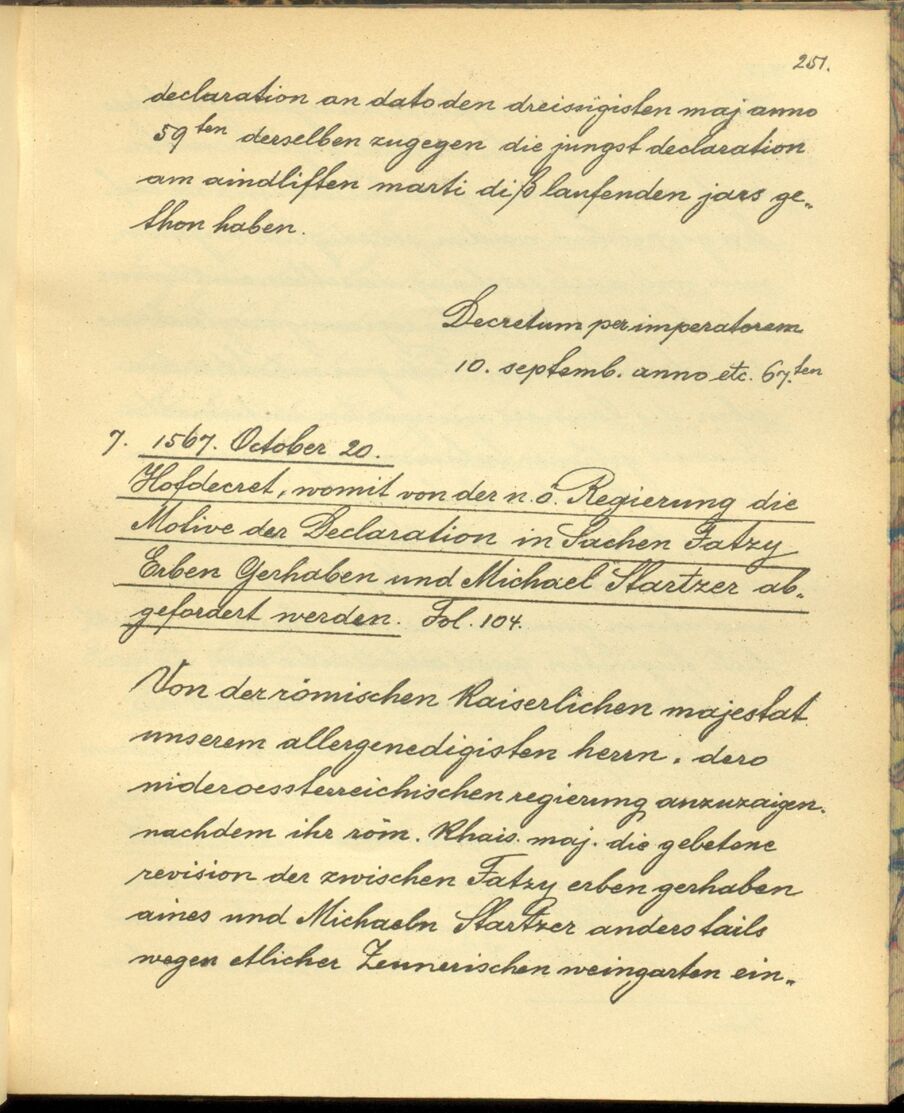 251.
declaration an dato den dreissigisten maj anno
59ten derselben zugegen die jungst declaration
am aindliften marti diß laufenden jars ge„
thon haben.
Decretum per imperatorem
10. septemb. anno etc. 67.ten
7. 1567. October 20.
Hofdecret, womit von der n. ö. Regierung die
Motive der Declaration in Sachen Fatzy
Erben Gerhaben und Michael Startzer ab„
gefordert werden. Fol. 104.
Von der römischen Kaiserlichen majestat
unserem allergenedigisten herrn. dero
nideroessterreichischen regierung anzuzaigen.
nachdem ihr röm. Khais. maj. die gebetene
revision der zwischen Fatzy erben gerhaben
aines und Michaeln Startzer anderstails
wegen etlicher Zeunerischen weingarten ein„